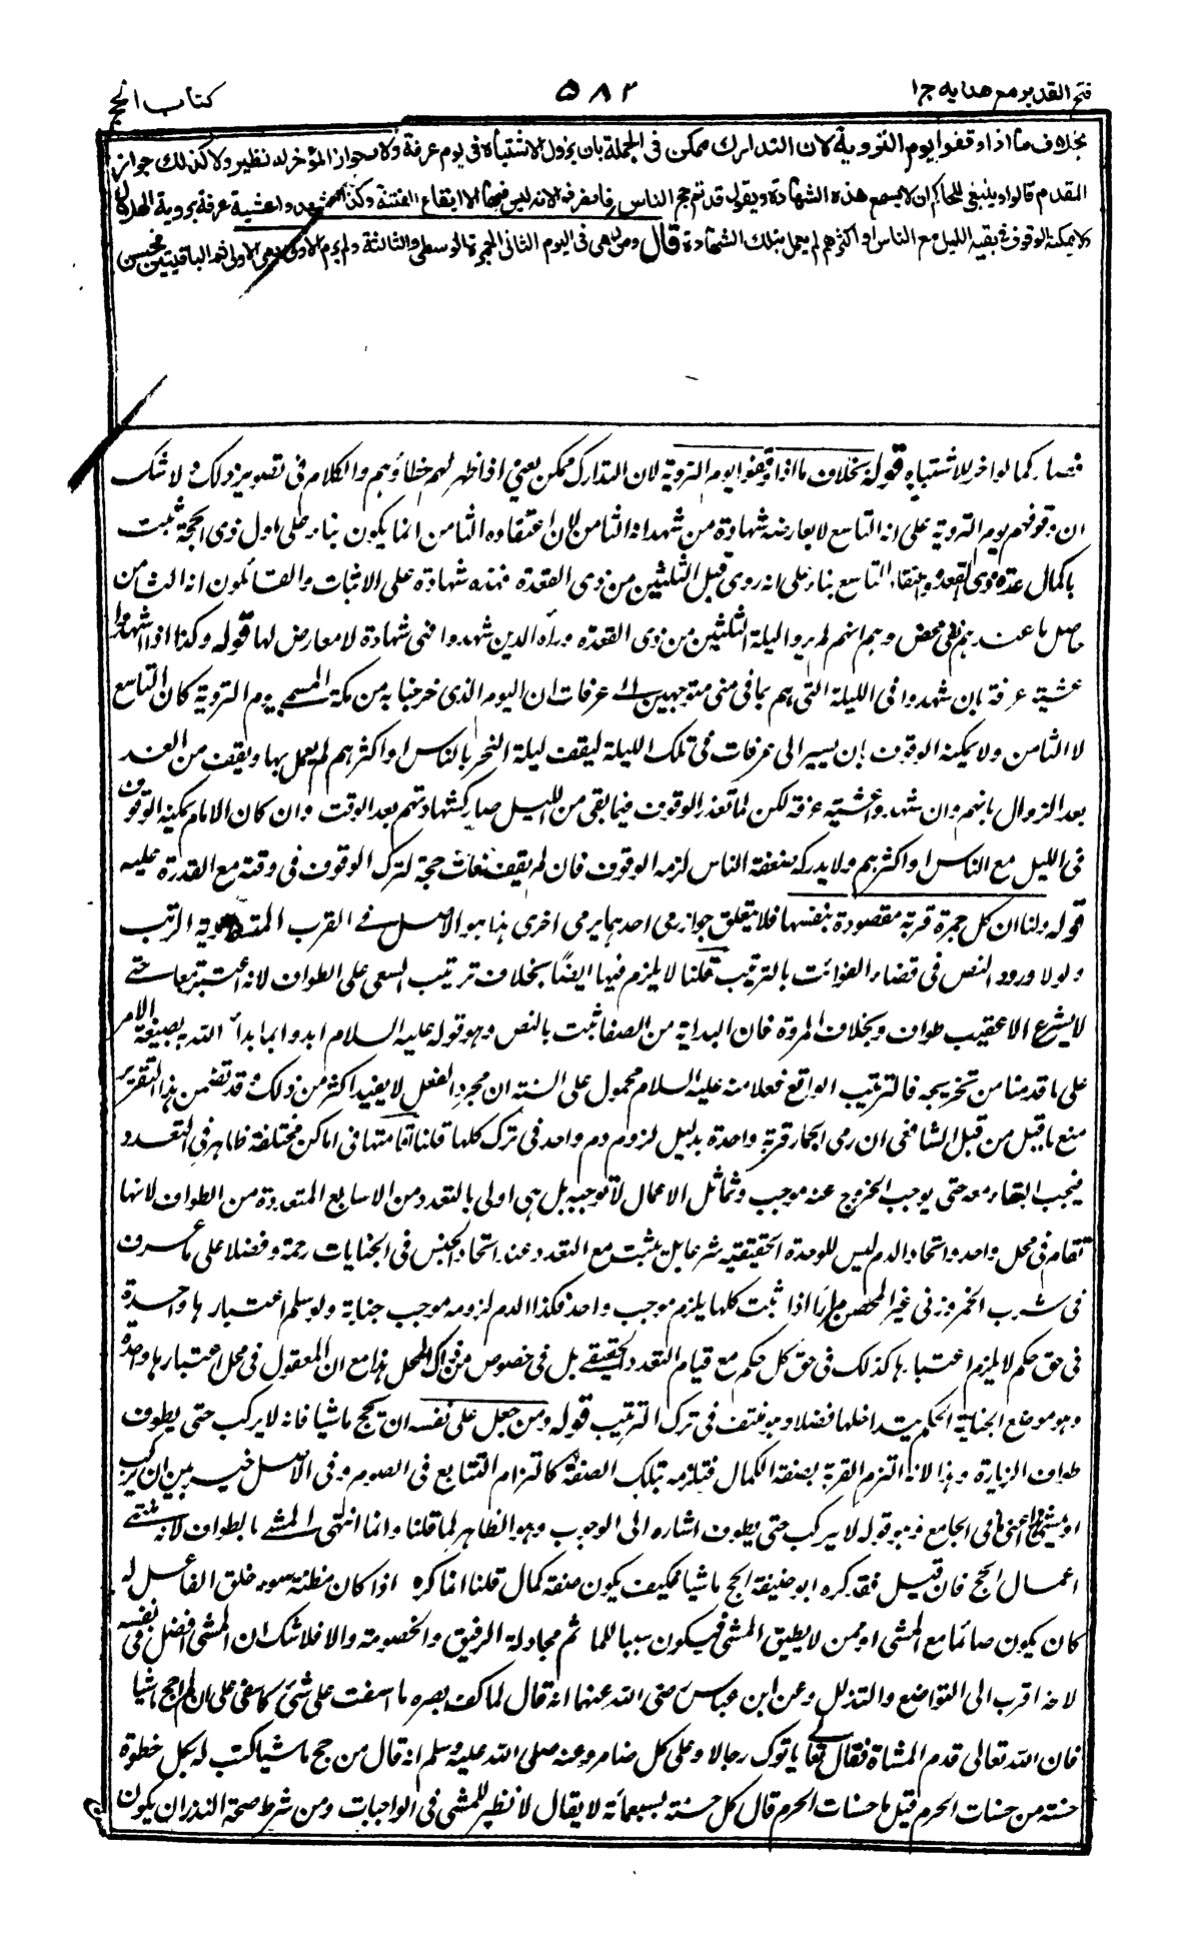 فتح القدير مع هدايه ج١
٥٨٢
كتاب الحج
بخلاف ما اذا وقفوا يوم التروية لان التدارك ممكن فى الجملة بان يزول الاشتباه فى يوم عرفة ولان جواز المؤخر له نظير ولا كذلك جواز
المقدم قالوا وينبغى للحاكم ان لا يسمع هذه الشهادة ويقول قد تم حج الناس فانصرفوا لانه ليس فيها الا ايقاع الفتنة وكذا اذا شهدوا عشية عرفة برؤية الهلال
ولا يمكنه الوقوف فى بقية الليل مع الناس او اكثرهم لم يعمل بتلك الشهادة قال ومن رمى فى اليوم الثانى الجمرة الوسطى والثالثة ولم يرم الاولى فان رمى الاولى ثم الباقيتين فحسن
فصار كما لو اخر للاشتباه قوله بخلاف ما اذا وقفوا يوم التروية لان التدارك ممكن يعنى اذا ظهر لهم خطاؤهم والكلام فى تصوير ذلك ولا شك
ان وقوفهم يوم التروية على انه التاسع لا يعارضه شهادة من شهد انه الثامن لان اعتقاده الثامن انما يكون بناء على اول ذى الحجة ثبت
باكمال عدة ذى القعدة واعتقاد التاسع بناء على انه روى قبل الثلثين من ذى القعدة فهذه شهادة على الاثبات والقائلون انه الثامن
حاصل ما عندهم نفى محض وهم انهم لم يروا ليلة الثلثين من ذى القعدة ورآه الذين شهدوا فهى شهادة لا معارض لها قوله وكذا اذا شهدوا
عشية عرفة بان شهدوا فى الليلة التى هم بها فى منى متوجهين الى عرفات ان اليوم الذى خرجنا به من مكة المسمى بيوم التروية كان التاسع
لا الثامن ولا يمكنه الوقوف بان يسير الى عرفات فى تلك الليلة ليقف ليلة النحر بالناس او اكثرهم لم يعمل بها ويقف من الغد
بعد الزوال بانهم وان شهدوا عشية عرفة لكن لما تعذر الوقوف فيما بقى من الليل صار كشهادتهم بعد الوقت وان كان الامام يمكنه الوقوف
فى الليل مع الناس او اكثرهم ولا يدركه ضعفة الناس لزمه الوقوف فان لم يقف فات حجة لترك الوقوف فى وقته مع القدرة عليه
قوله ولنا ان كل جمرة قربة مقصودة بنفسها فلا يتعلق جواز رمى احدهما برمى اخرى هذا هو الاصل فى القرب المتساوية الرتب
ولولا ورود النص فى قضاء الفوائت بالترتيب قلنا لا يلزم فيها ايضا بخلاف ترتيب السعى على الطواف لانه اعتبر تبعا حتى
لا يشرع الا عقيب طواف وبخلاف المروة فان البداية من الصفا ثبت بالنص وهو قوله عليه السلام ابدوا بما بدأ الله به بصيغة الامر
على ما قدمنا من تخريجه فالترتيب الواقع فعلا منه عليه السلام محمول على السنة ان مجرد الفعل لا يفيد اكثر من ذلك وقد تضمن هذا التقرير
منع ما قيل من قبل الشافعى ان رمى الجمار قربة واحدة بدليل لزوم دم واحد فى ترك كلها قلنا اقامتها فى اماكن مختلفة ظاهر فى التعدد
فيجب البقاء معه حتى يوجب الخروج عنه موجب وتماثل الاعمال لا توجبه بل هى اولى بالتعدد من الاسابع المتعددة من الطواف لانها
تقام فى محل واحد واتحاد الدم ليس للوحدة الحقيقية شرعا بل يثبت مع التعدد عند اتحاد الجنس فى الجنايات رحمة وفضلا على ما عرف
فى شرب الخمر وزنى غير المحصن مرارا اذا ثبت كلها يلزم موجب واحد فكذا الدم لزومه موجب جناية ولو سلم اعتبارها واحدة
فى حق حكم لا يلزم اعتبارها كذلك فى حق كل حكم مع قيام التعدد الحقيقى بل فى خصوص ذلك المحل هذا مع ان المعقول فى محل اعتبارها واحدة
وهو موضع الجناية الحكم بتداخلها فضلا وهو منتف فى ترك الترتيب قوله ومن جعل على نفسه ان يحج ماشيا فانه لا يركب حتى يطوف
طواف الزيارة وهذا لانه التزم القربة بصفة الكمال فتلزمه بتلك الصفة كالتزام التتابع فى الصوم وفى الاصل خيره بين ان يركب
او يمشى اعنى فى الجامع وهو قوله لا يركب حتى يطوف اشارة الى الوجوب وهو الظاهر لما قلنا وانما انتهى المشى بالطواف لانه منتهى
اعمال الحج فان قيل فقد كره ابو حنيفة الحج ماشيا فكيف يكون صفة كمال قلنا انما كره اذا كان مظنة سوء خلق الفاعل له
كان يكون صائما مع المشى او ممن لا يطيق المشى فيكون سببا للماثم مجادلة الرفيق والخصومة والا فلا شك ان المشى افضل فى نفسه
لانه اقرب الى التواضع والتذلل وعن ابن عباس رضى الله عنهما انه قال لما كف بصره ما اسفت على شئ كاسفى على ان لم احج ماشيا
فان الله تعالى قدم المشاة فقال تعالى ياتوك رجالا وعلى كل ضامر وعنه صلى الله عليه وسلم انه قال من حج ماشيا كتب له بكل خطوة
حسنة من حسنات الحرم قيل ما حسنات الحرم قال كل حسنة بسبعمائة لا يقال لا نظير للمشى فى الواجبات ومن شرط صحة النذر ان يكون